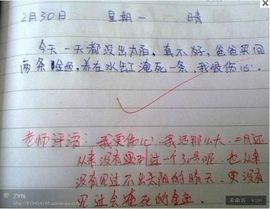 2月30日 星期一 晴
今天一天都没出太阳,真不好,爸爸买回
两条金鱼,养在水缸淹死一条,我很伤心.
老师评语:我更伤心,我活那么大,二月还
从来没有碰到过一个30号呢,也从来
没有见过不出太阳的晴天,更没有
见过会淹死的金鱼
ZYN